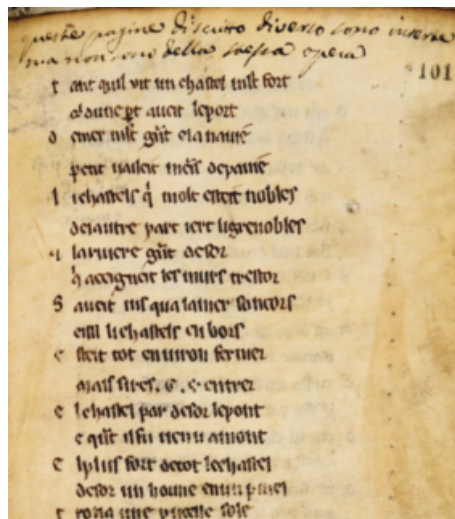 queste pagine di scritto diverso sono inserte
ma non sono della stessa opera
101
t ant quil vit un chastel mlt fort
d une pt aueit le port
d e mer mlt gnt e la nauie
petit ualeit meis de pauie
l i chastels q̃ molt esteit nobles
de lautre part iert
l a riuiere gnt desoz
q̃ acceigneit les murs trestoz
S aueit iusqua la mer son cors
eissi li chastels en bors
e steit tot enuiron fermez
mais sires .G. e entrez
e l chastel par desoz le pont
e qnt il fu uenu amont
E l plus fort de tot le chastel
desoz un en un
t roua une pucelle sole